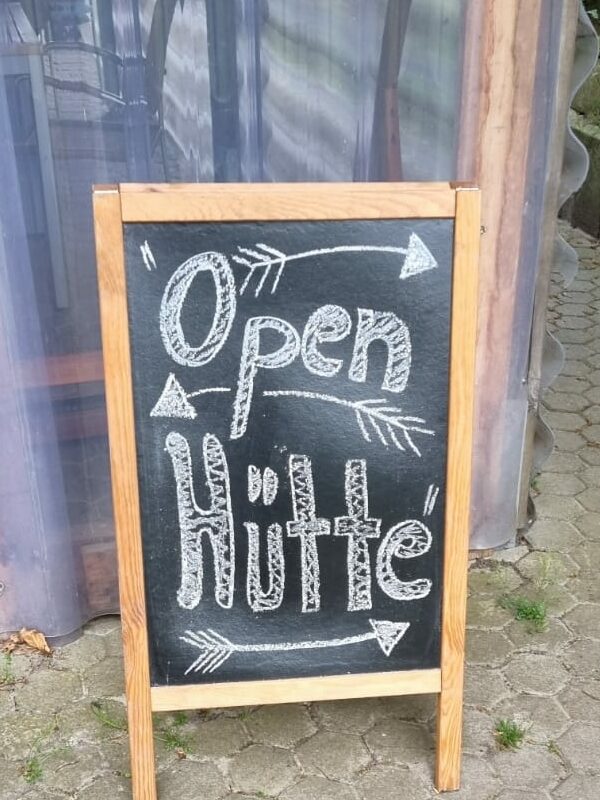 "Open
Hütte"